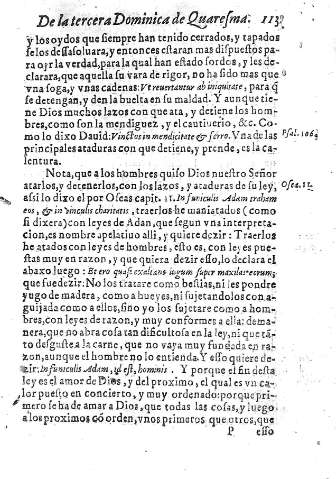 De la tercera Dominica de Quaresma. 113
y los oydos que siempre han tenido cerrados, y tapados
se los dessasoluara, y entonces estaran mas dispuestos pa-
ra oyr la verdad, para la qual han estado sordos, y les de-
clarara, que aquella su vara de rigor, no ha sido mas que
vna soga, y vnas cadenas: Vt reuertantur ab iniquitate, para q̃
se detengan, y den la buelta en su maldad. Y aunque tie-
ne Dios muchos lazos con que ata, y detiene los hom-
bres, como son la mendiguez, y el cautiuerio, &c. Co-
mo lo dixo Dauid: Vinctos in mendicitate & ferro. Vna de las Psal. 106.
principales ataduras con que detiene, y prende, es la ca-
lentura.
Nota, que a los hombres quiso Dios nuestro Señor
atarlos, y detenerlos, con los lazos, y ataduras de su ley, Osea. 11.
assi lo dixo el por Oseas capit. 11. In funiculis Adam traham
eos, & in vinculis charitatis, traerlos he maniatados (como
si dixera) con leyes de Adan, que segun vna interpreta-
cion, es nombre apelatiuo alli, y quiere dezir: Traerlos
he atados con leyes de hombres, esto es, con leyes pue-
stas muy en razon, y que quiera dezir esso, lo declara el
abaxo luego: Et ero quasi exaltans iugum super maxillas eorum;
que fue dezir: No los tratare como bestias, ni les pondre
yugo de madera, como a hueyes, ni sujetandolos con a-
guijada como a ellos, sino yo los sujetare como a hom-
bres, con leyes de razon, y muy conformes a ella: de ma-
nera, que no abra cosa tan dificultosa en la ley, ni que tã-
to desguste a la carne, que no vaya muy fundada en ra-
zon, aunque el hombre no lo entienda. Y esso quiere de-
zir: In funiculis Adam, id est, hominis. Y porque el fin desta
ley es el amor de Dios, y del proximo, el qual es vn ca-
lor puesto en concierto, y muy ordenado: porque pri-
mero se ha de amar a Dios, que todas las cosas, y luego
a los proximos cõ orden, vnos primeros que otros, que
P esso